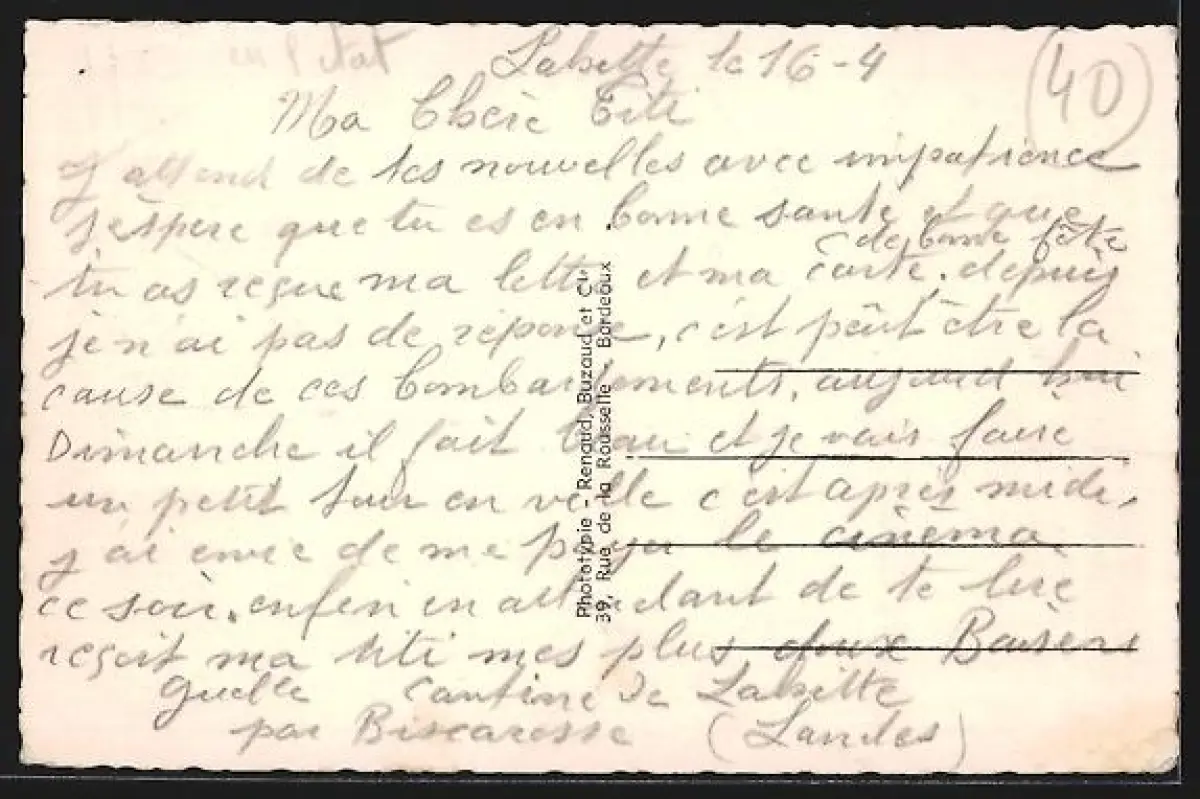 en l'état
40
Labette le 16-4
Ma Chère Titi
J attend de tes nouvelles avec impatience
j'espère que tu es en bonne sante et que
de bonne fête
tu as reçue ma lettre et ma carte. depuis
je n'ai pas de reponse, c'est peût être la
cause de ces bombardements, aujourd'hui
Dimanche il fait beau et je vais faire
un petit tour en ville c'est après midi,
j'ai envie de me payer le cinèma
ce soir. enfin en attendant de te lire
reçoit ma titi mes plus doux Baisers
Guelle cantine de Labette
par Biscarosse (Landes)
Phototypie - Renaud, Buzaud et Cie
39, Rue de la Rousselle Bordeaux